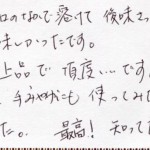 口のなかで溶けて 後味さっ
味しかったです。
上品で 頂度いいです。
手みやげにも 使ってみ
た。 最高! 知って